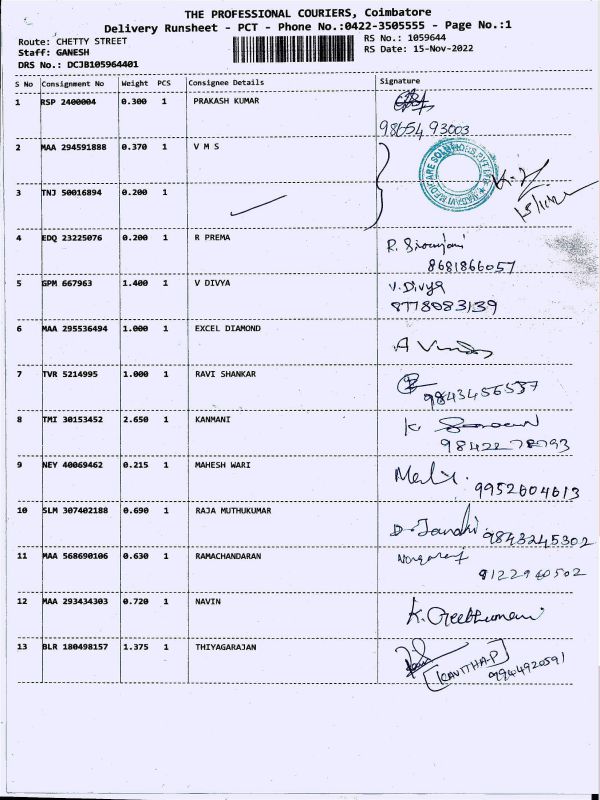 THE PROFESSIONAL COURIERS, Coimbatore
Delivery Runsheet - PCT - Phone No.:0422-3505555 - Page No.:1
Route: CHETTY STREET
Staff: GANESH
DRS No.: DCJB105964401
RS No.: 1059644
RS Date: 15-Nov-2022
S No Consignment No Weight PCS Consignee Details Signature
1 RSP 2400004 0.300 1 PRAKASH KUMAR
98654 93003
2 MAA 294591888 0.370 1 V M S
3 TNJ 50016894 0.200 1
4 EDQ 23225076 0.200 1 R PREMA
8681866057
5 GPM 667963 1.400 1 V DIVYA
V. Divya
8778083139
6 MAA 295536494 1.000 1 EXCEL DIAMOND
7 TVR 5214995 1.000 1 RAVI SHANKAR
9843456537
8 TMI 30153452 2.650 1 KANMANI
9 NEY 40069462 0.215 1 MAHESH WARI
9952604613
10 SLM 307402188 0.690 1 RAJA MUTHUKUMAR
D. Janaki 9843245302
11 MAA 568690106 0.630 1 RAMACHANDARAN
9122940502
12 MAA 293434303 0.720 1 NAVIN
13 BLR 180498157 1.375 1 THIYAGARAJAN
KAVITHA.P
9944920591